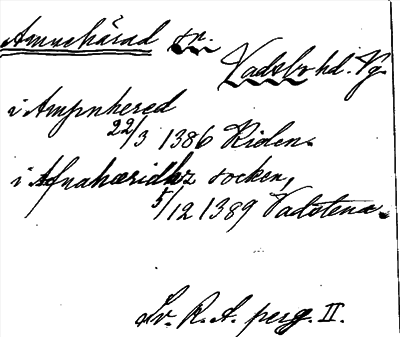 Amnehärad sn.
Vadsbo hd. Vg.
i Ampnhered
22/3 1386 Riden.
i Afnahæridhz socken,
5/12 1389 Vadstena.
Sv. R. A. perg. II.